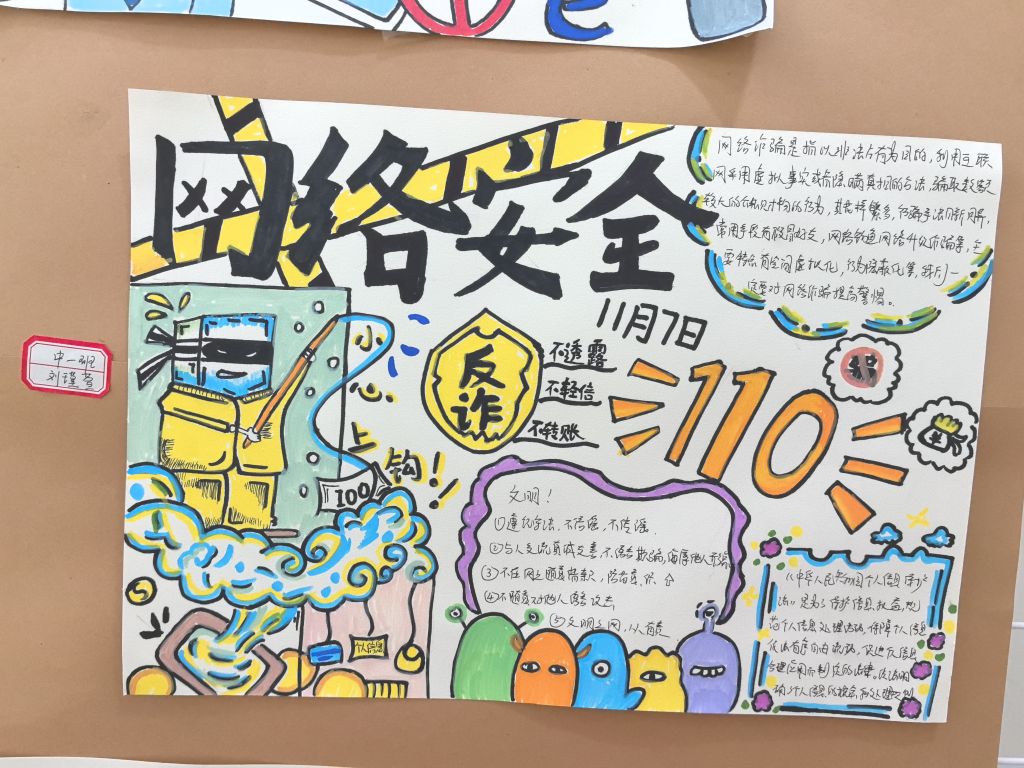 网络安全
11月7日
小心上钩!
100
反诈
不透露
不轻信
不转账
110
网络诈骗是指以非法占有为目的，利用互联
网采用虚拟事实或者隐瞒真相的方法，骗取数额
较大的公私财物的行为，其花样繁多，行骗手法日新月异，
常用手段有假冒好友，网络钓鱼网络升级诈骗等，主
要特点有空间虚拟化，行为隐蔽化等，我们一
定要对网络诈骗提高警惕。
文明!
①遵纪守法，不传谣，不信谣
②与人交流真诚友善，不
③不在网上随意
④不随意对他人
⑤文明上网，从
个人信息
《中华人民共和国个人信息保护
法》是为了保护信息权益，规
范个人信息处理活动，保障个人信息
依法有序自由流动，促进个人信息
合理利用而制定的法律。
中一班
刘瑾萱